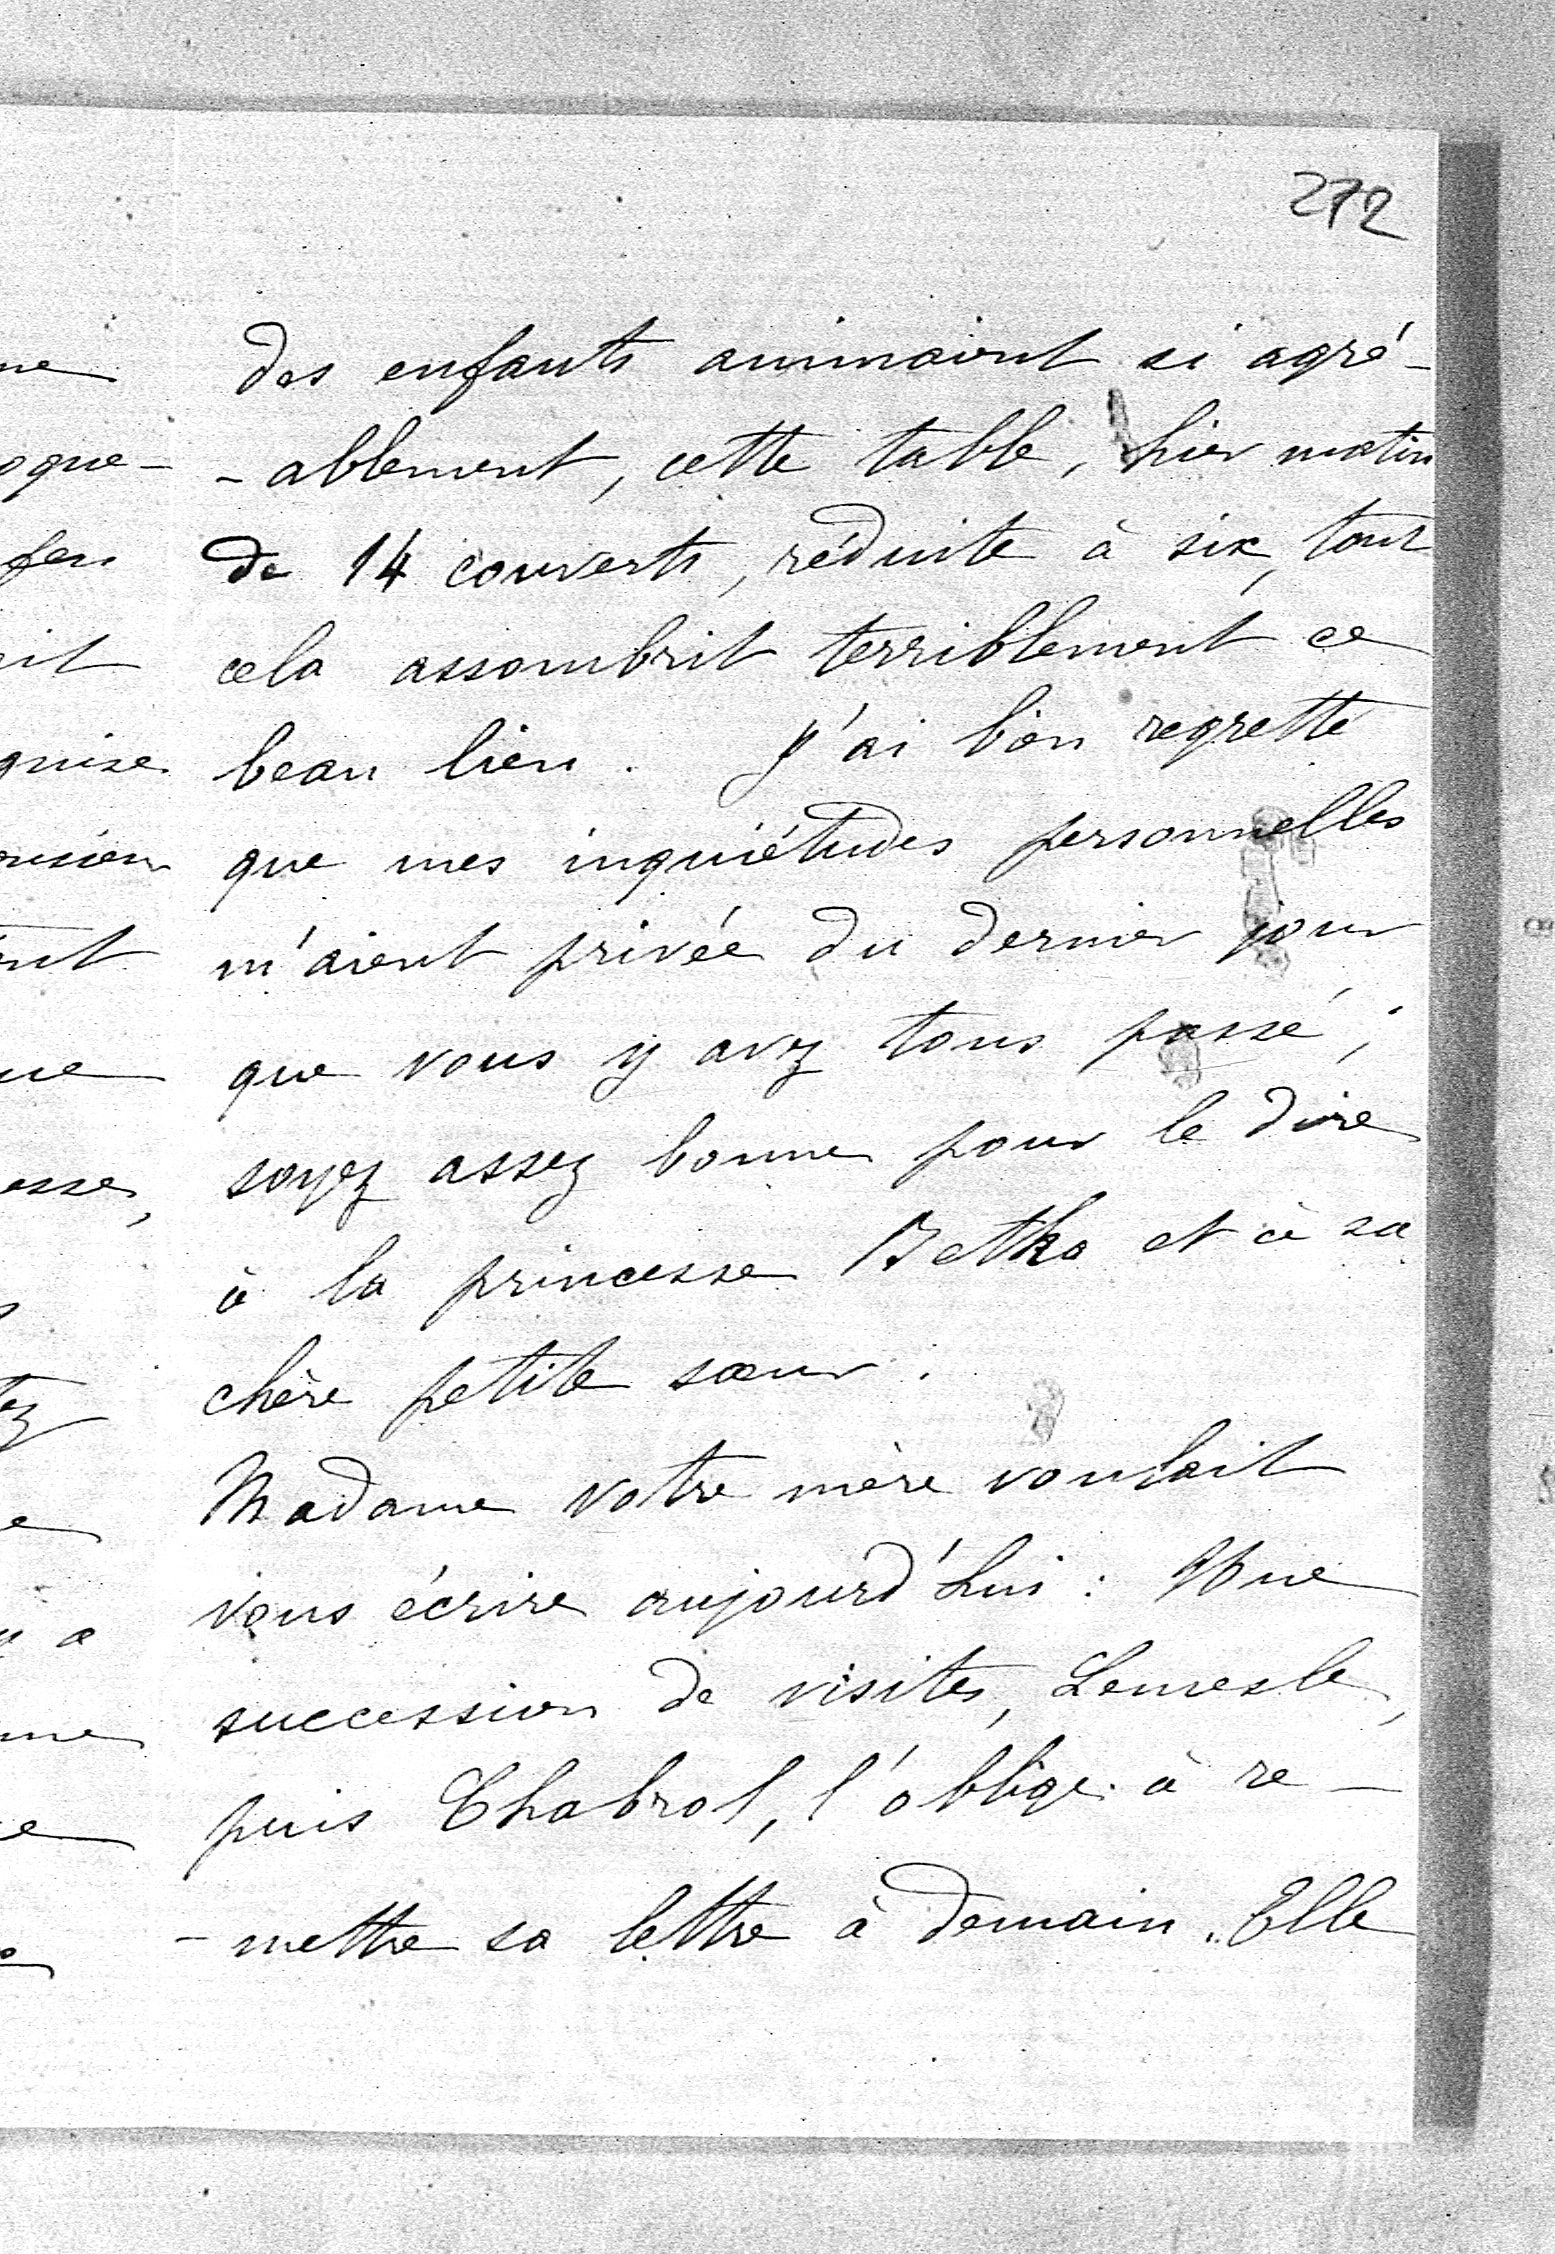 272
des enfants animaient si agré-
-ablement, cette table, hier matin
de 14 couverts, réduite à six, tout
cela assombrit terriblement ce
beau lieu. J'ai bien regretté
que mes inquiétudes personnelles
m'aient privée du dernier jour
que vous y avez tous passé ;
soyez assez bonne pour le dire
à la princesse Betka et à sa
chère petite sœur.
Madame votre mère voulait
vous écrire aujourd'hui : Une
succession de visites, Lemesle,
puis Chabrol, l'oblige à re-
-mettre sa lettre à demain. Elle